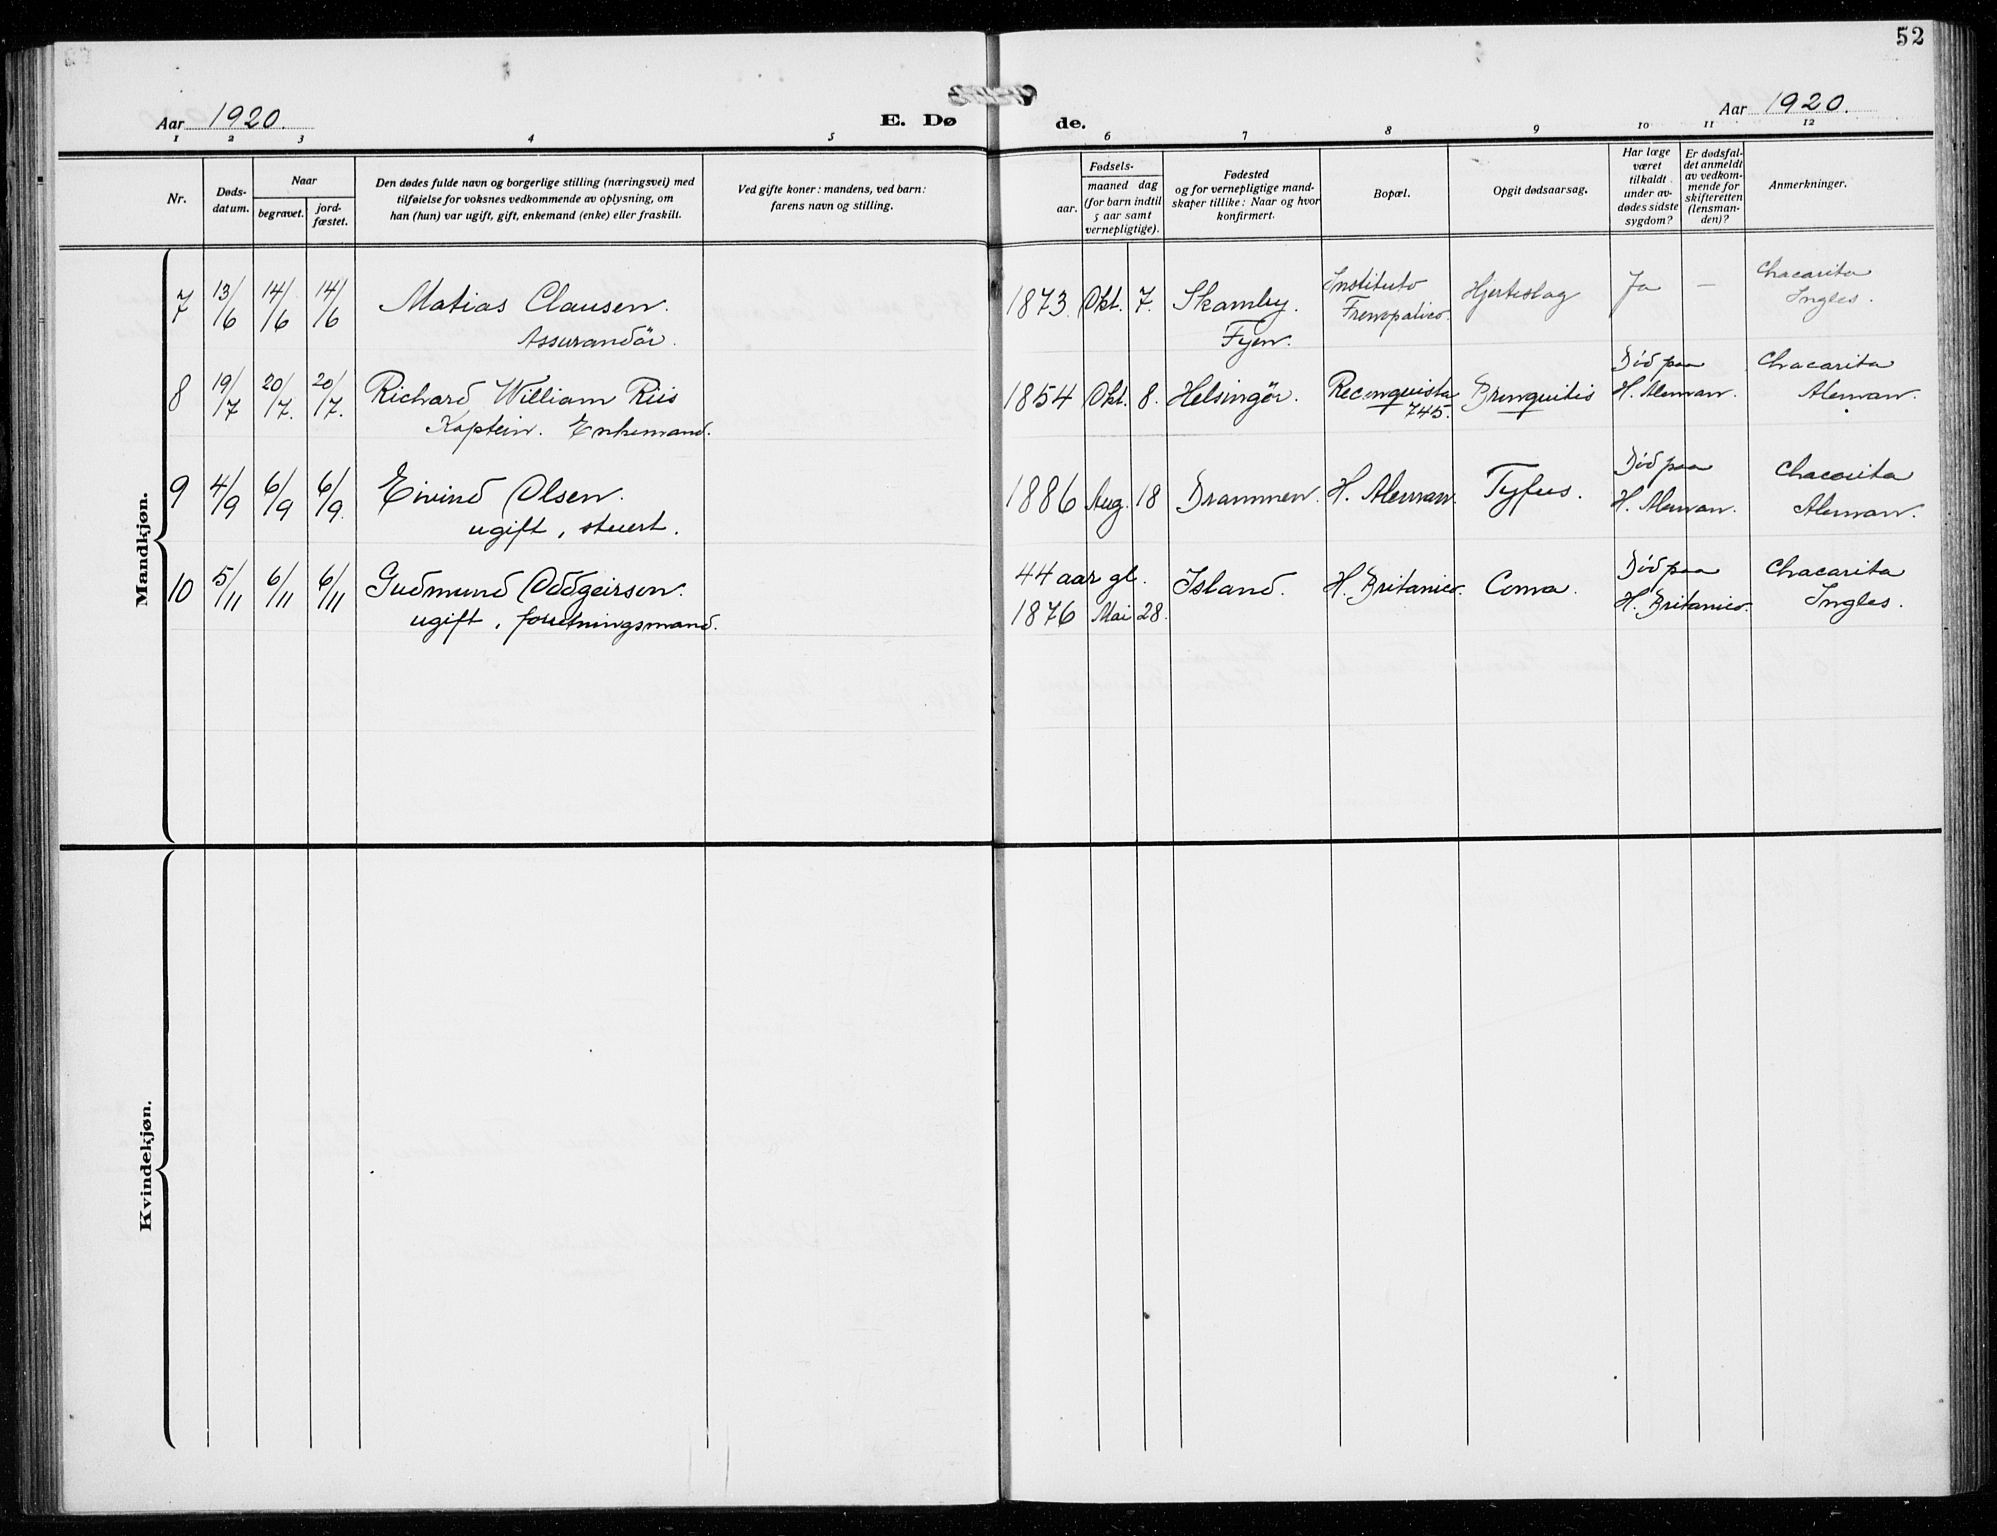 52
Aar 1920.
E. Døde.
Aar 1920.
1 2 3 4 5 6 7 8 9 10 11 12
Nr.
Døds-
datum.
Naar
begravet.
jord-
fæstet.
Den dødes fulde navn og borgerlige stilling (næringsvei) med
tilføielse for voksnes vedkommende av oplysning, om
han (hun) var ugift, gift, enkemand (enke) eller fraskilt.
Ved gifte koner: mandens, ved barn:
farens navn og stilling.
Fødsels-
aar.
maaned dag
(for barn indtil
5 aar samt
vernepligtige).
Fødested
og for vernepligtige mand-
skaper tillike: Naar og hvor
konfirmert.
Bopæl.
Opgit dødsaarsag.
Har læge
været
tilkaldt
under av-
dødes sidste
sygdom?
Er dødsfal-
det anmeldt
av vedkom-
mende for
skifteretten
(lensman-
den)?
Anmerkninger.
Mandkjøn.
7 13/6 14/6 14/6 Matias Clausen. 1873. Okt. 7. Skamby. Instituto Hjerteslag Ja — Chacarita
Assurandör. Fyen. Frenopatico. Ingles.
8 19/7 20/7. 20/7. Richard William Riis 1854 Okt. 8. Helsingör. Reconquista 745. Bronquitis Död paa H. Aleman. Chacarita
Kaptein. Enkemand. Aleman.
9 4/9 6/9 6/9. Eivind Olsen. 1886 Aug. 18 Drammen. H. Aleman. Tyfus. Död paa H. Aleman. Chacarita
ugift, stuert. Aleman.
10 5/11 6/11 6/11 Gudmund Oddgeirson. 44 aar gl. Island. H. Britanico. Coma. Död paa H. Britanico. Chacarita
ugift, forretningsmand. 1876 Mai 28. Ingles.
Kvindekjøn.